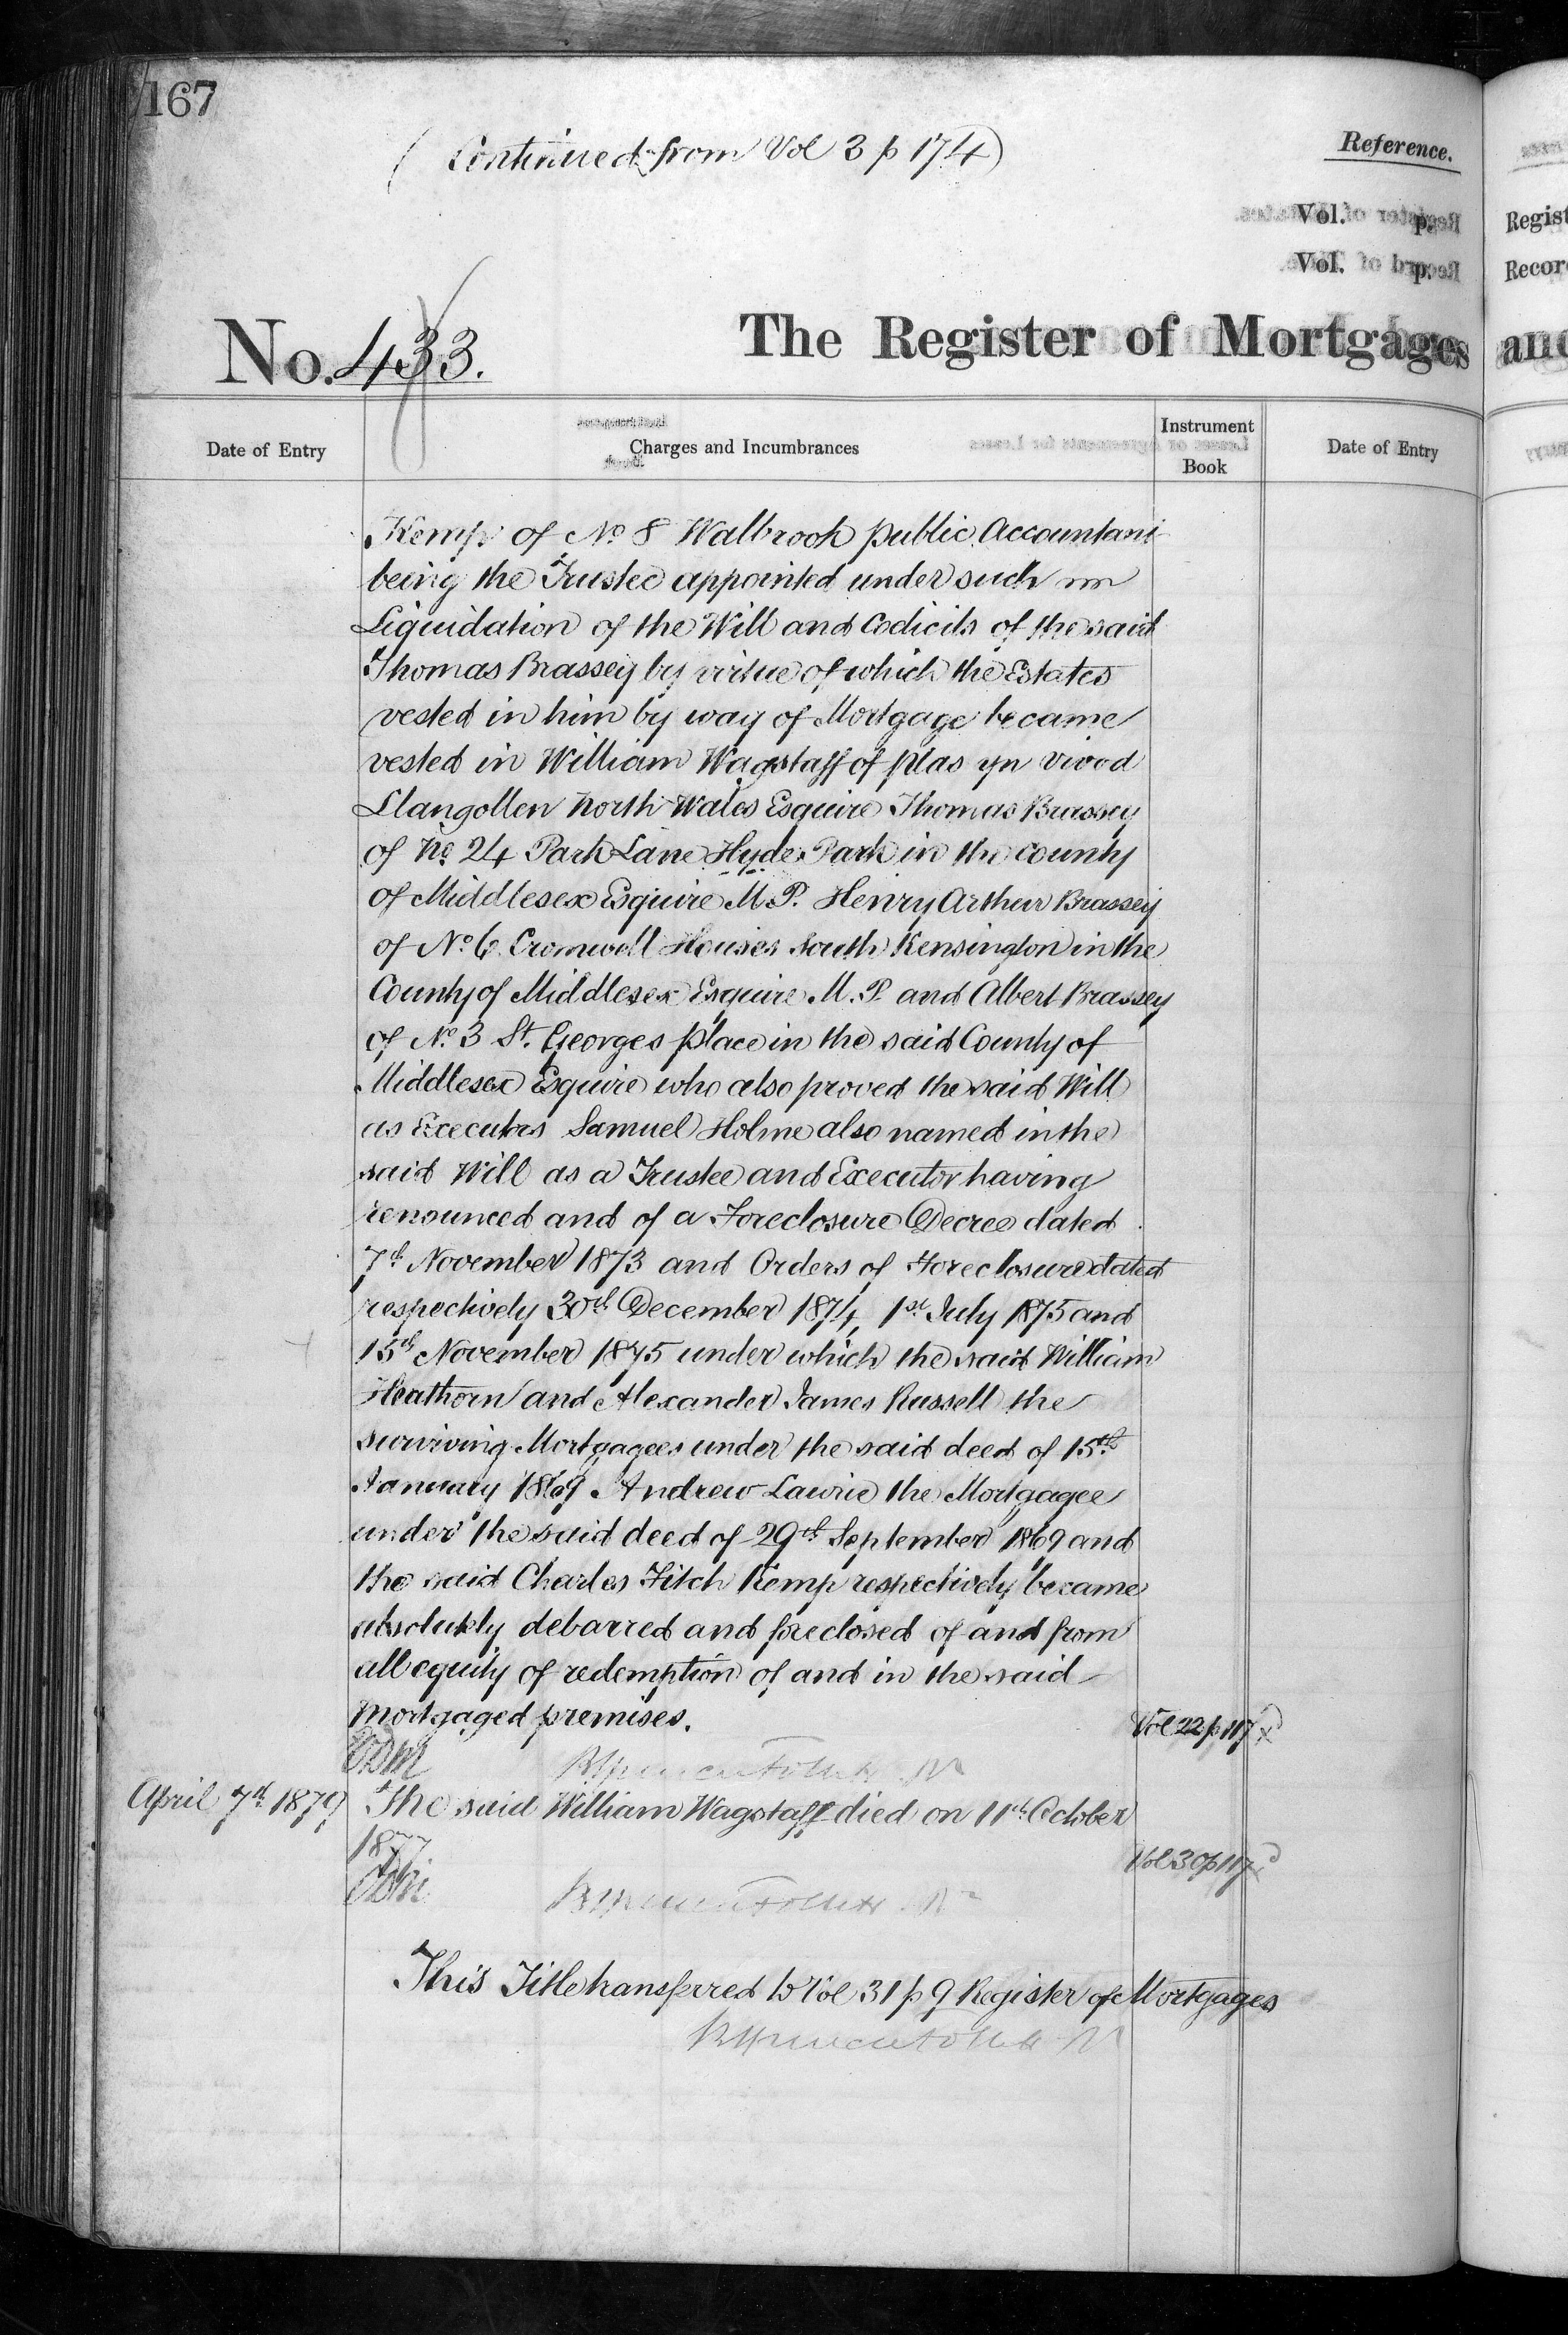 167
(Continued from Vol 3 p 174)
Reference.
Vol. p.
Vol. p.
No. 433.
The Register of Mortgages
and
Regist
Recor
Date of Entry
Charges and Incumbrances
Instrument
Book
Date of Entry
Kemp of No 8 Walbrook public Accountant
being the Trustee appointed under such
Liquidation of the Will and Codicils of the said
Thomas Brassey by virtue of which the Estates
vested in him by way of Mortgage became
vested in William Wagstaff of plas yn vivod
Llangollen North Wales Esquire Thomas Brassey
of No 24 Park Lane Hyde Park in the county
of Middlesex Esquire M.P. Henry Arthur Brassey
of No 6 Cromwell Houses South Kensington in the
County of Middlesex Esquire M.P. and Albert Brassey
of No 3 St. Georges place in the said County of
Middlesex Esquire who also proved the said Will
as Executors Samuel Holme also named in the
said Will as a Trustee and Executor having
renounced and of a Foreclosure Decree dated
7th November 1873 and Orders of Foreclosure dated
respectively 30th December 1874, 1st July 1875 and
15th November 1875 under which the said William
Heathorn and Alexander James Russell the
surviving Mortgagees under the said deed of 15th
January 1869 Andrew Lawrie the Mortgagee
under the said deed of 29th September 1869 and
the said Charles Fitch Kemp respectively became
absolutely debarred and foreclosed of and from
all equity of redemption of and in the said
mortgaged premises.
Vol 22 p 117
April 7th 1879
The said William Wagstaff died on 11th October
1877
Vol 30 p 117
This Title transferred to Vol 31 p 9 Register of Mortgages